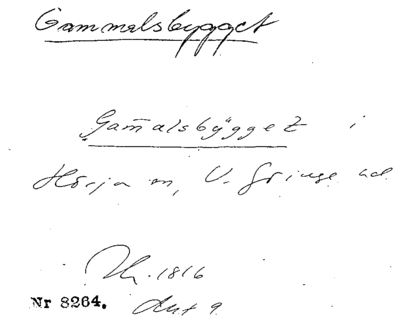 Gammalsbygget
Gam̄alsbÿgget i
Hörja sn, V. Göinge hd
1816
Nr 8264. Akt 9